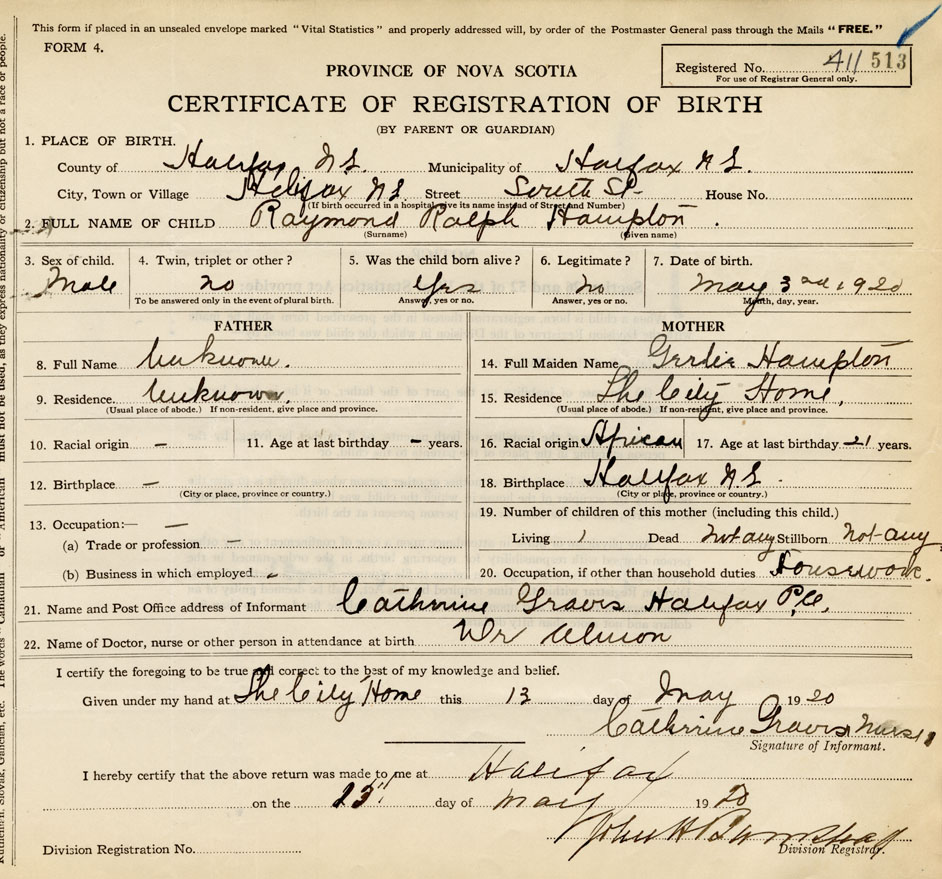 This form if placed in an unsealed envelope marked "Vital Statistics" and properly addressed will, by order of the Postmaster General pass through the Mails "FREE."
FORM 4.
Registered No. 411 513
For use of Registrar General only.
PROVINCE OF NOVA SCOTIA
CERTIFICATE OF REGISTRATION OF BIRTH
(BY PARENT OR GUARDIAN)
1. PLACE OF BIRTH.
County of Halifax N S. Municipality of Halifax N S.
City, Town or Village Halifax N S. Street South St. House No.
(If birth occurred in a hospital, give its name instead of Street and Number)
2. FULL NAME OF CHILD Raymond Ralph Hampton.
(Surname) (Given name)
3. Sex of child. 4. Twin, triplet or other? 5. Was the child born alive? 6. Legitimate? 7. Date of birth.
Male no Yes no May 3rd, 1920
To be answered only in the event of plural birth. Answer, yes or no. Answer, yes or no. Month, day, year.
FATHER MOTHER
8. Full Name Unknown.
9. Residence. Unknown.
(Usual place of abode.) If non-resident, give place and province.
10. Racial origin — 11. Age at last birthday - years.
12. Birthplace —
(City or place, province or country.)
13. Occupation:— —
(a) Trade or profession —
(b) Business in which employed -
14. Full Maiden Name Gertie Hampton
15. Residence The City Home,
(Usual place of abode.) If non-resident, give place and province.
16. Racial origin African 17. Age at last birthday 21 years.
18. Birthplace Halifax N S.
(City or place, province or country.)
19. Number of children of this mother (including this child.)
Living 1 Dead Not any Stillborn Not-any
20. Occupation, if other than household duties Housework.
21. Name and Post Office address of Informant Cathrine Graves Halifax P.O.
22. Name of Doctor, nurse or other person in attendance at birth Dr Almon
I certify the foregoing to be true and correct to the best of my knowledge and belief.
Given under my hand at The City Home this 13 day of May 1920
Cathrine Graves Nurse
Signature of Informant.
I hereby certify that the above return was made to me at Halifax
on the day of May 1920
John H
Division Registrar.
Division Registration No.
must not be used, as they express nationality or citizenship but not a race or people.
The words "Canadian" or "American"
Ruthenian, Slovak, Galician, etc.